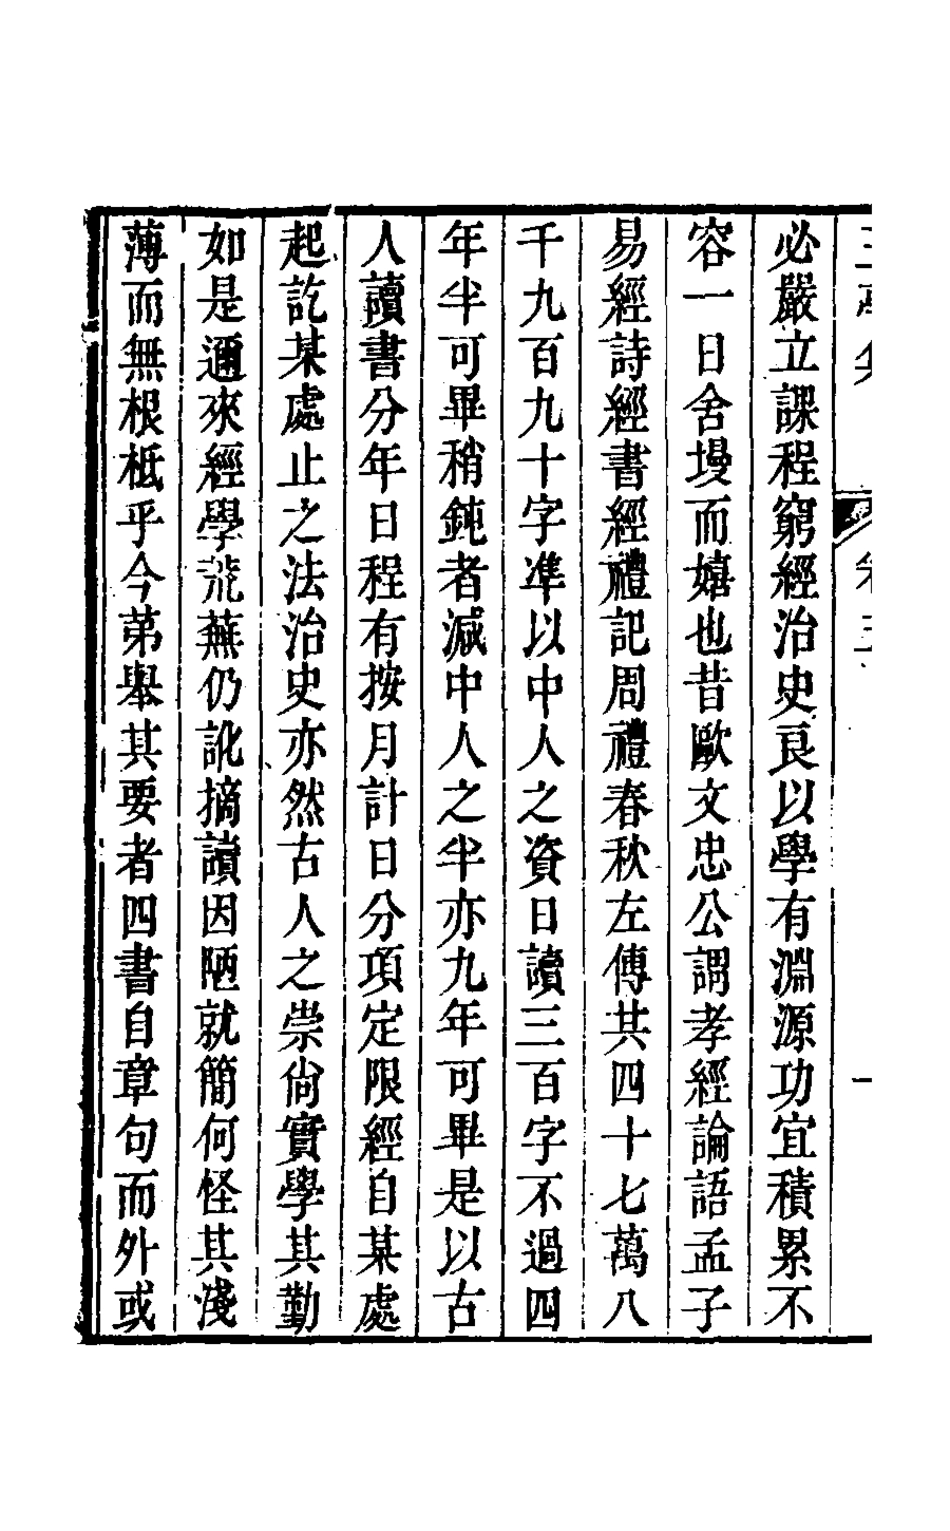 必嚴立課程窮經治史良以學有淵源功宜積累不
容一日舍墁而嬉也昔歐文忠公謂孝經論語孟子
易經詩經書經禮記周禮春秋左傳共四十七萬八
千九百九十字準以中人之資日讀三百字不過四
年半可畢稍鈍者減中人之半亦九年可畢是以古
人讀書分年日程有按月計日分項定限經自某處
起訖某處止之法治史亦然古人之崇尚實學其勤
如是邇來經學荒蕪仍訛摘讀因陋就簡何怪其淺
薄而無根柢乎今第舉其要者四書自章句而外或